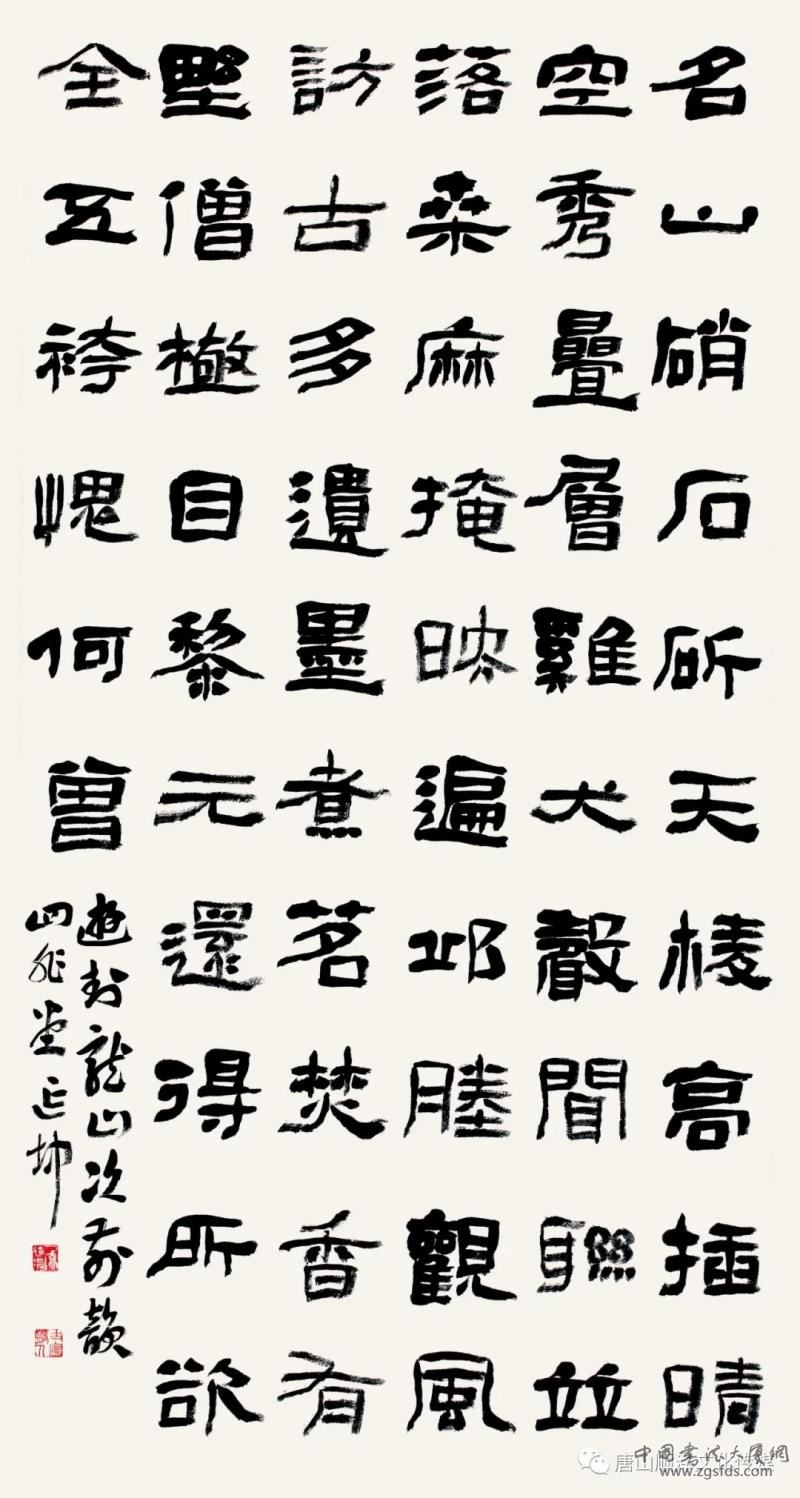 名山硝石斫天棱高插晴
空秀疊層雞犬聲聞聯並
落桑麻掩映遍邱塍觀風
訪古多遺墨煮茗焚香有
野僧極目黎元還得所欲
全五袴愧何曾
遊封龍山次前韻
四非堂延坤
唐山
中國書法大厦網
www.zgsfds.com